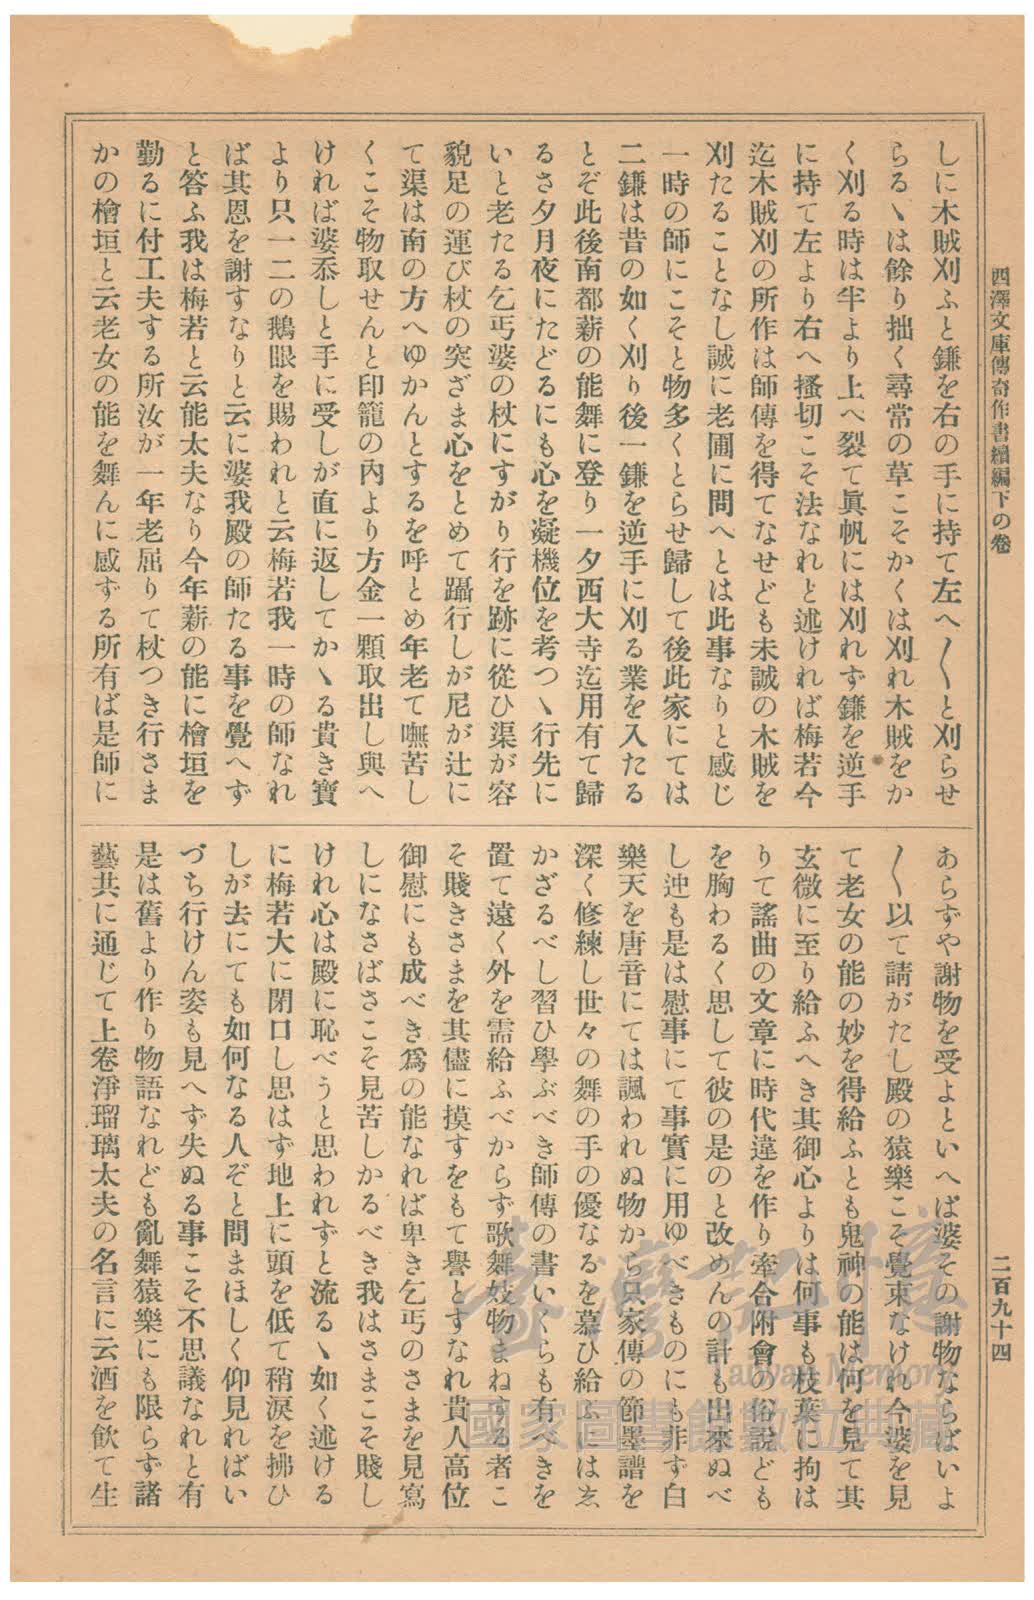 西澤文庫傳奇作書續編下の卷
しに木賊刈ふと鎌を右の手に持て左へ〳〵と刈らせ
らるヽは餘り拙く尋常の草こそかくは刈れ木賊をか
く刈る時は半より上へ裂て眞帆には刈れず鎌を逆手
に持て左より右へ搔切こそ法なれと述ければ梅若今
迄木賊刈の所作は師傳を得てなせども未誠の木賊を
刈たることなし誠に老圃に問へとは此事なりと感じ
一時の師にこそと物多くとらせ歸して後此家にては
二鎌は昔の如く刈り後一鎌を逆手に刈る業を入たる
とぞ此後南都薪の能舞に登り一夕西大寺迄用有て歸
るさ夕月夜にたどるにも心を凝機位を考つヽ行先に
いと老たる乞丐婆の杖にすがり行を跡に從ひ渠が容
貌足の運び杖の突ざま心をとめて躡行しが尼が辻に
て渠は南の方へゆかんとするを呼とめ年老て嘸苦し
くこそ物取せんと印籠の內より方金一顆取出し與へ
ければ婆忝しと手に受しが直に返してかヽる貴き寶
より只一二の鵝眼を賜われと云梅若我一時の師なれ
ば其恩を謝すなりと云に婆我殿の師たる事を覺へず
と答ふ我は梅若と云能太夫なり今年薪の能に檜垣を
勤るに付工夫する所汝が一年老屈りて杖つき行さま
かの檜垣と云老女の能を舞んに感ずる所有ば是師に
あらずや謝物を受よといへば婆その謝物ならばいよ
〳〵以て請がたし殿の猿樂こそ覺束なけれ今婆を見
て老女の能の妙を得給ふとも鬼神の能は何を見て其
玄微に至り給ふへき其御心よりは何事も枝葉に拘は
りて謠曲の文章に時代違を作り牽合附會の俗說ども
を胸わるく思して彼の是のと改めんの計も出來ぬべ
し迚も是は慰事にて事實に用ゆべきものにも非ず白
樂天を唐音にては諷われぬ物から只家傳の節墨譜を
深く修練し世々の舞の手の優なるを慕ひ給ふにはゑ
かざるべし習ひ學ぶべき師傳の書いくらも有べきを
置て遠く外を需給ふべからず歌舞妓物まねする者こ
そ賤きさまを其儘に摸すをもて譽とすなれ貴人高位
御慰にも成べき爲の能なれば卑き乞丐のさまを見寫
しになさばさこそ見苦しかるべき我はさまこそ賤し
けれ心は殿に恥べうと思われずと流るヽ如く述ける
に梅若大に閉口し思はず地上に頭を低て稍淚を拂ひ
しが去にても如何なる人ぞと問まほしく仰見ればい
づち行けん姿も見へず失ぬる事こそ不思議なれと有
是は舊より作り物語なれども亂舞猿樂にも限らず諸
藝共に通じて上卷淨瑠璃太夫の名言に云酒を飲て生
二百九十四
臺灣記憶
Taiwan Memory
國家圖書館數位典藏